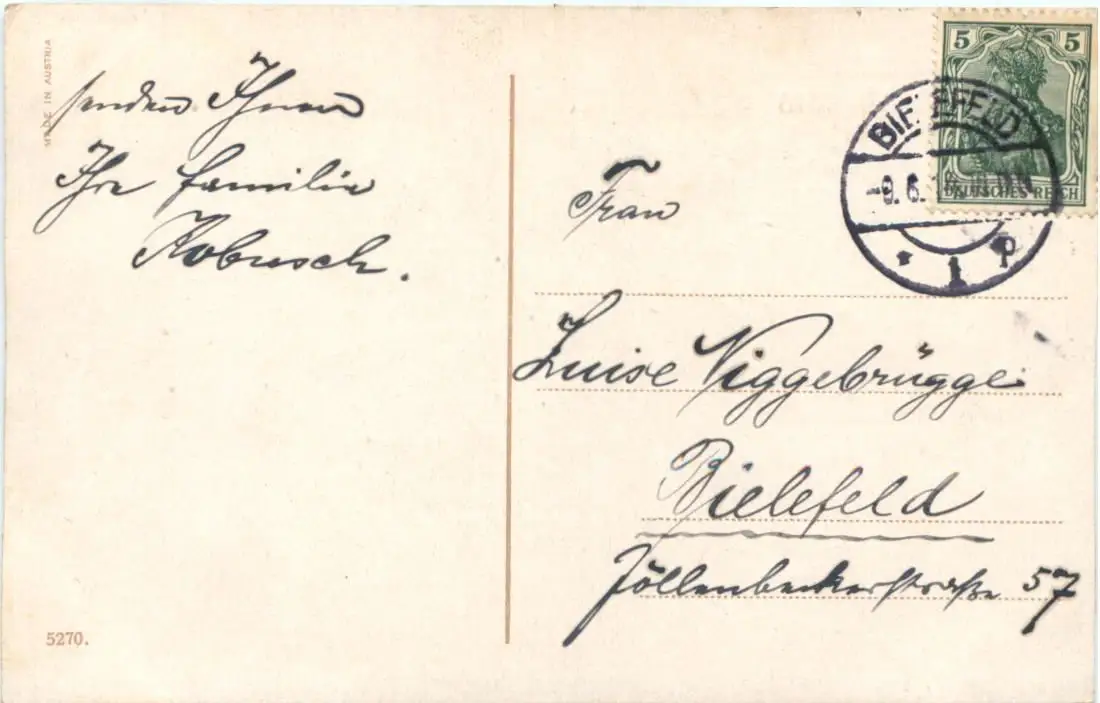 MADE IN AUSTRIA
senden Ihnen
Ihre Familie
Robusch.
5270.
5 5
DEUTSCHES REICH
BIELEFELD
-9.6.
* 1 p
Frau
Luise Niggebrügge
Bielefeld
Jöllenbeckerstraße 57